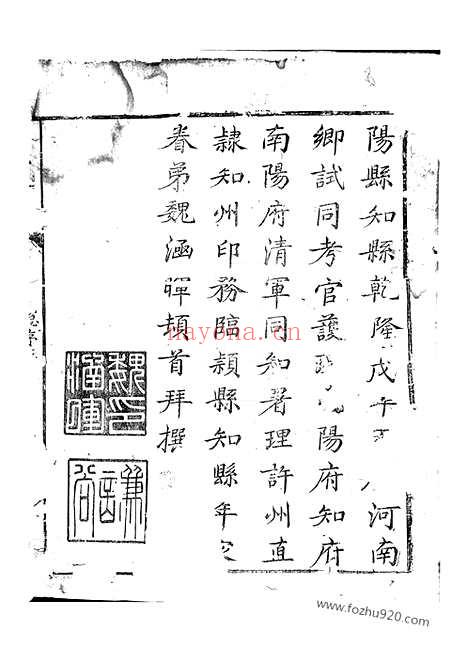 陽縣知縣乾隆戊午 河南
鄉試同考官護 陽府知府
南陽府清軍同知署理許州直
隸知州印務臨潁縣知縣年
眷弟魏涵暉頓首拜撰
魏印涵暉
nayona.cn
www.fozhu920.com